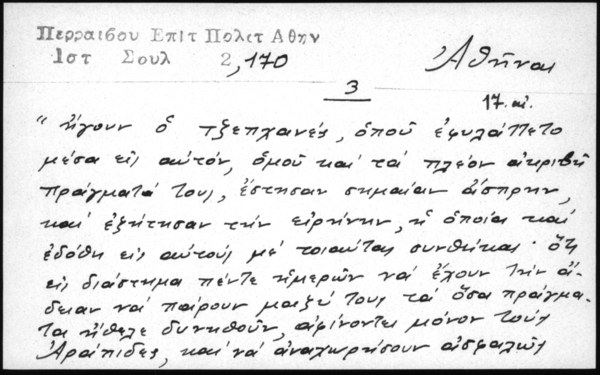 Περραιβου Επιτ Πολιτ Αθην
1στ Σουλ 2,170
Ἀθῆναι
3
17. αἰ.
"ἤγουν ὁ τζεπχανές, ὁποῦ ἐφυλάττετο
μέσα εἰς αὐτόν, ὁμοῦ καὶ τά πλέον ἀκριβῆ
πράγματά τους, ἔστησαν σημαίαν ἄσπρην,
καὶ ἐζήτησαν τὴν εἰρήνην, ἡ ὁποία καὶ
ἐδόθη εἰς αὐτούς μέ τοιαύτας συνθήκας· ὅτι
εἰς διάστημα πέντε ἡμερῶν νά ἔχουν τὴν ἄ-
δειαν νά παίρουν μαζί τους τά ὅσα πράγμα-
τα ἤθελε δυνηθοῦν, ἀφίνοντες μόνον τούς
Ἀράπιδες, καὶ νά ἀναχωρήσουν ἀσφαλῶς